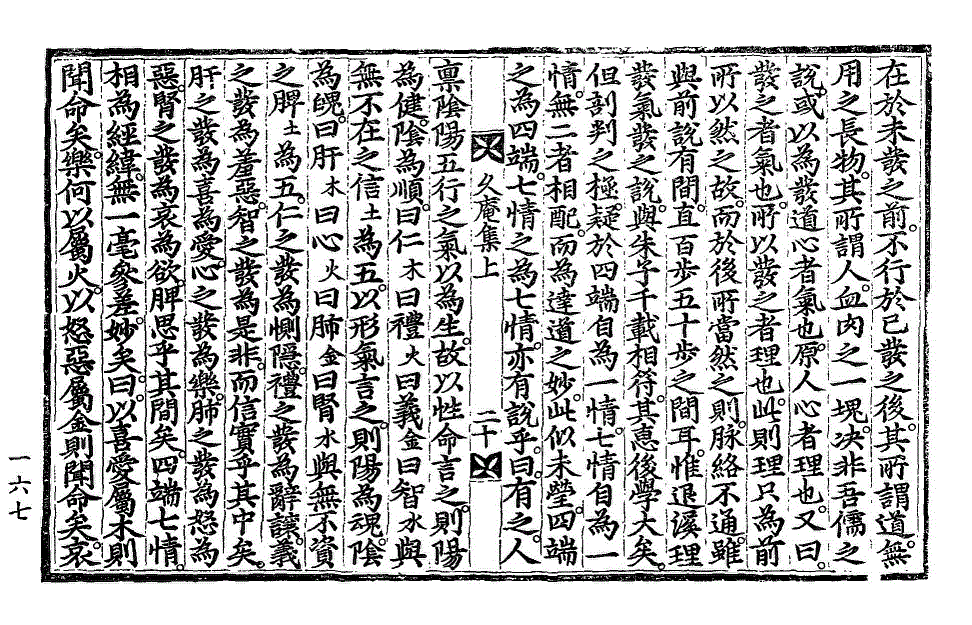 在於未發之前。不行於已發之後。其所謂道。無
用之長物。其所謂人。血肉之一塊。決非吾儒之
說。或以為發道心者氣也。原人心者理也。又曰。
發之者氣也。所以發之者理也。此則理只為前
所以然之故。而於後所當然之則。脉絡不通。雖
與前說有間。直百步五十步之間耳。惟退溪理
發氣發之說。與朱子千載相符。其惠後學大矣。
但剖判之極。疑於四端自為一情。七情自為一
情。無二者相配。而為達道之妙。此似未瑩。四端
之為四端。七情之為七情。亦有說乎。曰。有之。人
久庵集上 二十
禀陰陽五行之氣以為生。故以性命言之。則陽
為健。陰為順。曰仁木曰禮火曰義金曰智水與
無不在之信土為五。以形氣言之。則陽為魂。陰
為魄。曰肝木曰心火曰肺金曰腎水與無不資
之脾土為五。仁之發為惻隱。禮之發為辭讓。義
之發為羞惡。智之發為是非。而信實乎其中矣。
肝之發為喜為愛。心之發為樂。肺之發為怒為
惡。腎之發為哀為欲。脾思乎其間矣。四端七情。
相為經緯。無一毫參差。妙矣。曰。以喜愛屬木則
聞命矣。樂何以屬火。以怒惡屬金則聞命矣。哀
一六七